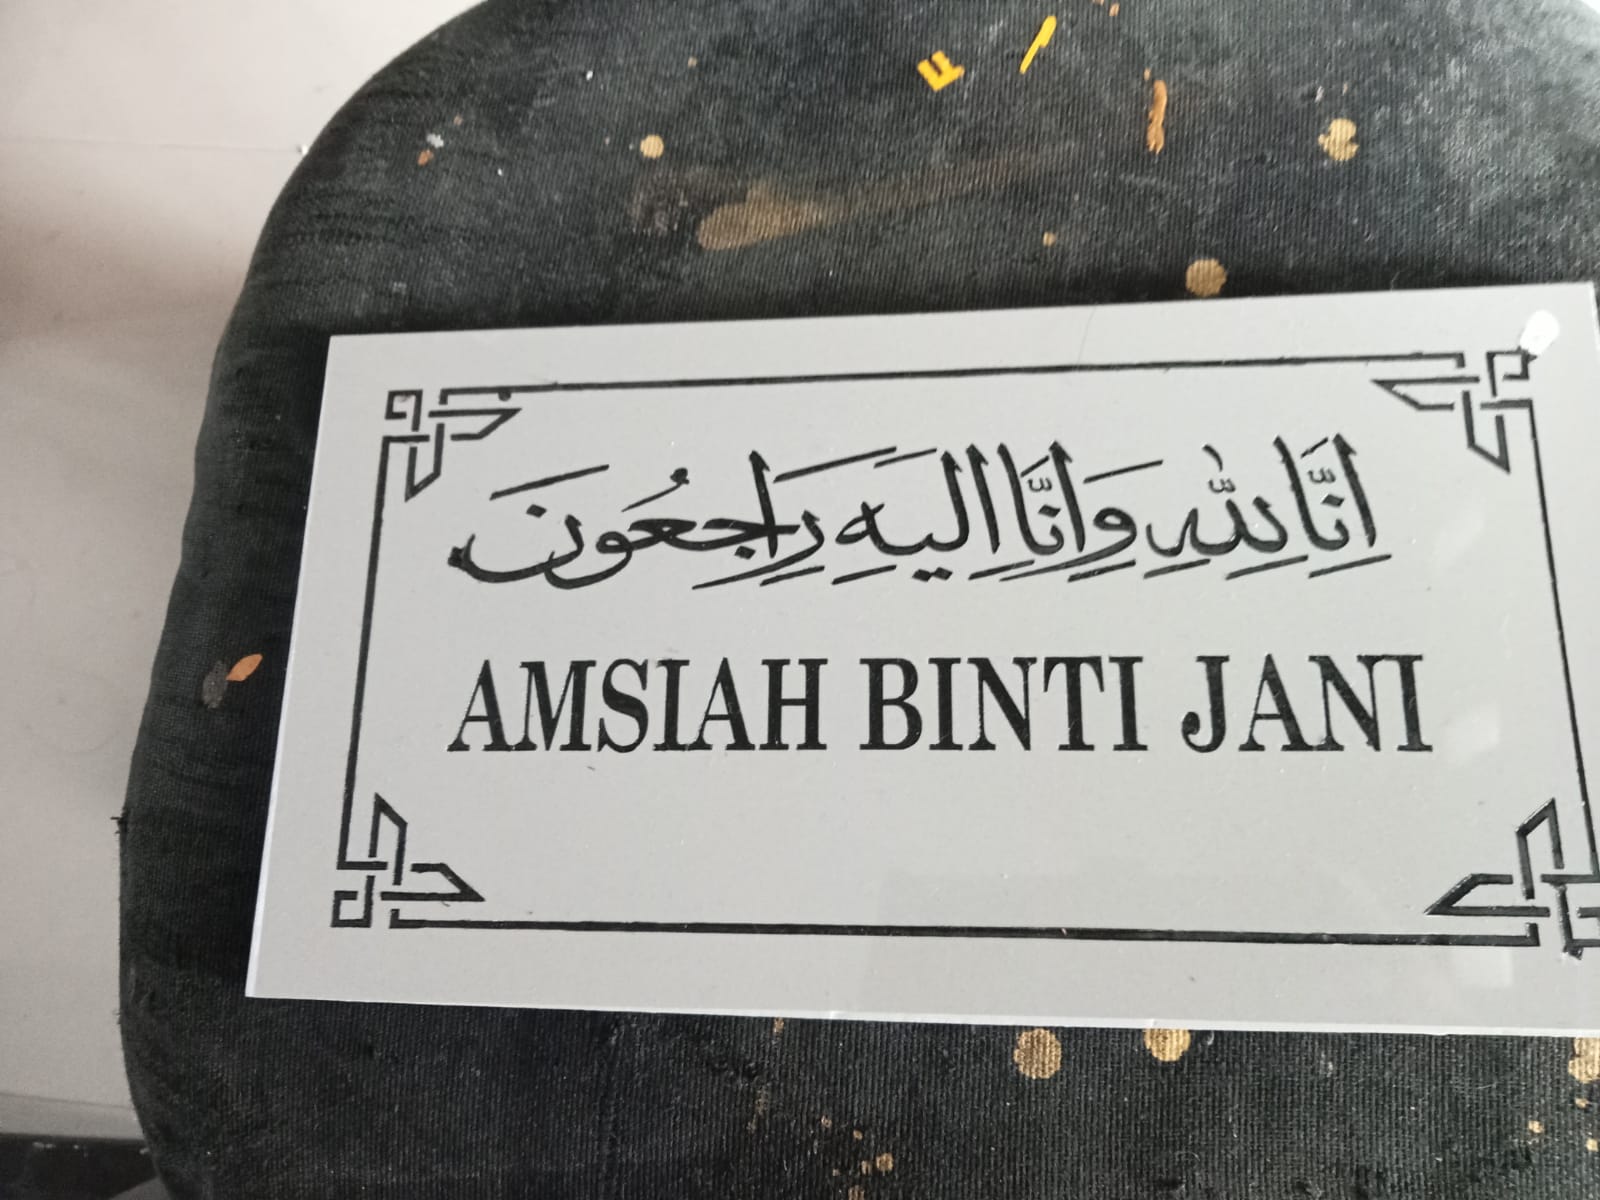 اِنَّا لِلّٰهِ وَاِنَّا اِلَيْهِ رَاجِعُونَ
AMSIAH BINTI JANI